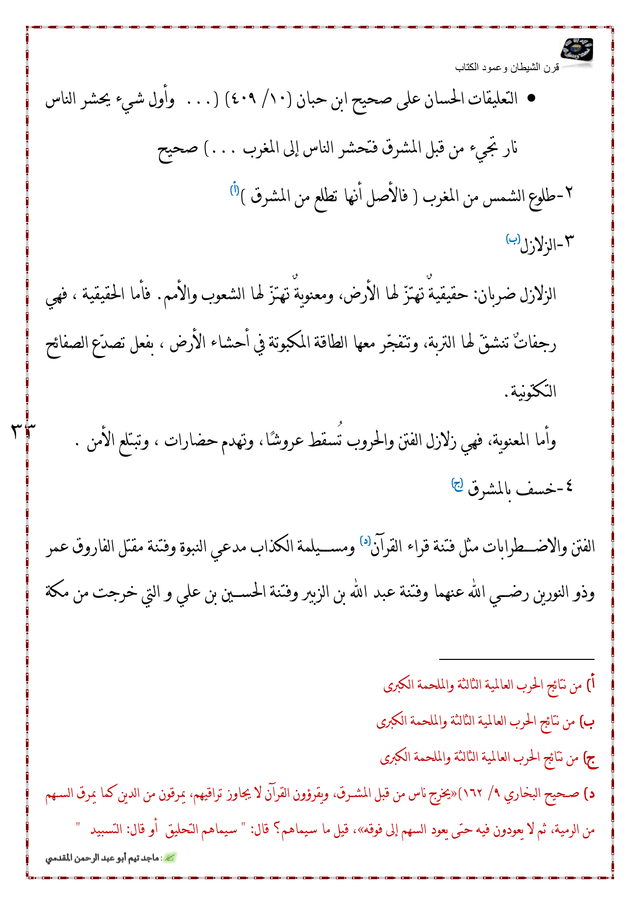 قرن الشيطان وعمود الكتاب
• التعليقات الحسان على صحيح ابن حبان (١٠/ ٤٠٩) (... وأول شيء يحشر الناس
نار تجيء من قبل المشرق فتحشر الناس إلى المغرب ...) صحيح
٢-طلوع الشمس من المغرب ( فالأصل أنها تطلع من المشرق )(أ)
٣-الزلازل(ب)
الزلازل ضربان: حقيقيةٌ تهتزّ لها الأرض، ومعنويةٌ تهتزّ لها الشعوب والأمم. فأما الحقيقية ، فهي
رجفاتٌ تنشقّ لها التربة، وتتفجّر معها الطاقة المكبوتة في أحشاء الأرض ، بفعل تصدّع الصفائح
التكتونية.
٣٣
وأما المعنوية، فهي زلازل الفتن والحروب تُسقط عروشًا، وتهدم حضارات ، وتبتلع الأمن .
٤-خسف بالمشرق (ج)
الفتن والاضطرابات مثل فتنة قراء القرآن(د) ومسيلمة الكذاب مدعي النبوة وفتنة مقتل الفاروق عمر
وذو النورين رضي الله عنهما وفتنة عبد الله بن الزبير وفتنة الحسين بن علي و التي خرجت من مكة
أ) من نتائج الحرب العالمية الثالثة والملحمة الكبرى
ب) من نتائج الحرب العالمية الثالثة والملحمة الكبرى
ج) من نتائج الحرب العالمية الثالثة والملحمة الكبرى
د) صحيح البخاري ٩/ ١٦٢)«يخرج ناس من قبل المشرق، ويقرؤون القرآن لا يجاوز تراقيهم، يمرقون من الدين كما يمرق السهم
من الرمية، ثم لا يعودون فيه حتى يعود السهم إلى فوقه»، قيل ما سيماهم؟ قال: " سيماهم التحليق أو قال: التسبيد "
: ماجد تيم أبو عبد الرحمن المقدسي